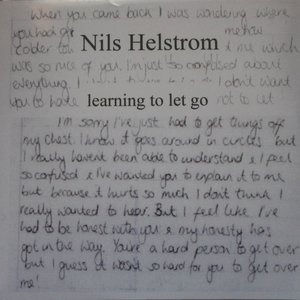 When you came back I was wondering where
you had
Nils Helstrom
colder
me which
was so nice of you. I'm just so confused about
everything. I don't want
you to hate
learning to let go
not to let
I'm sorry I've just had to get things off
my chest. I know it goes around in circles but
I really haven't been able to understand & I feel
so confused & I've wanted you to explain it to me
but because it hurts so much I don't think I
really wanted to hear. But I feel like I've
had to be honest with you & my honesty has
got in the way. You're a hard person to get over
but I guess it wasn't so hard for you to get over
me!